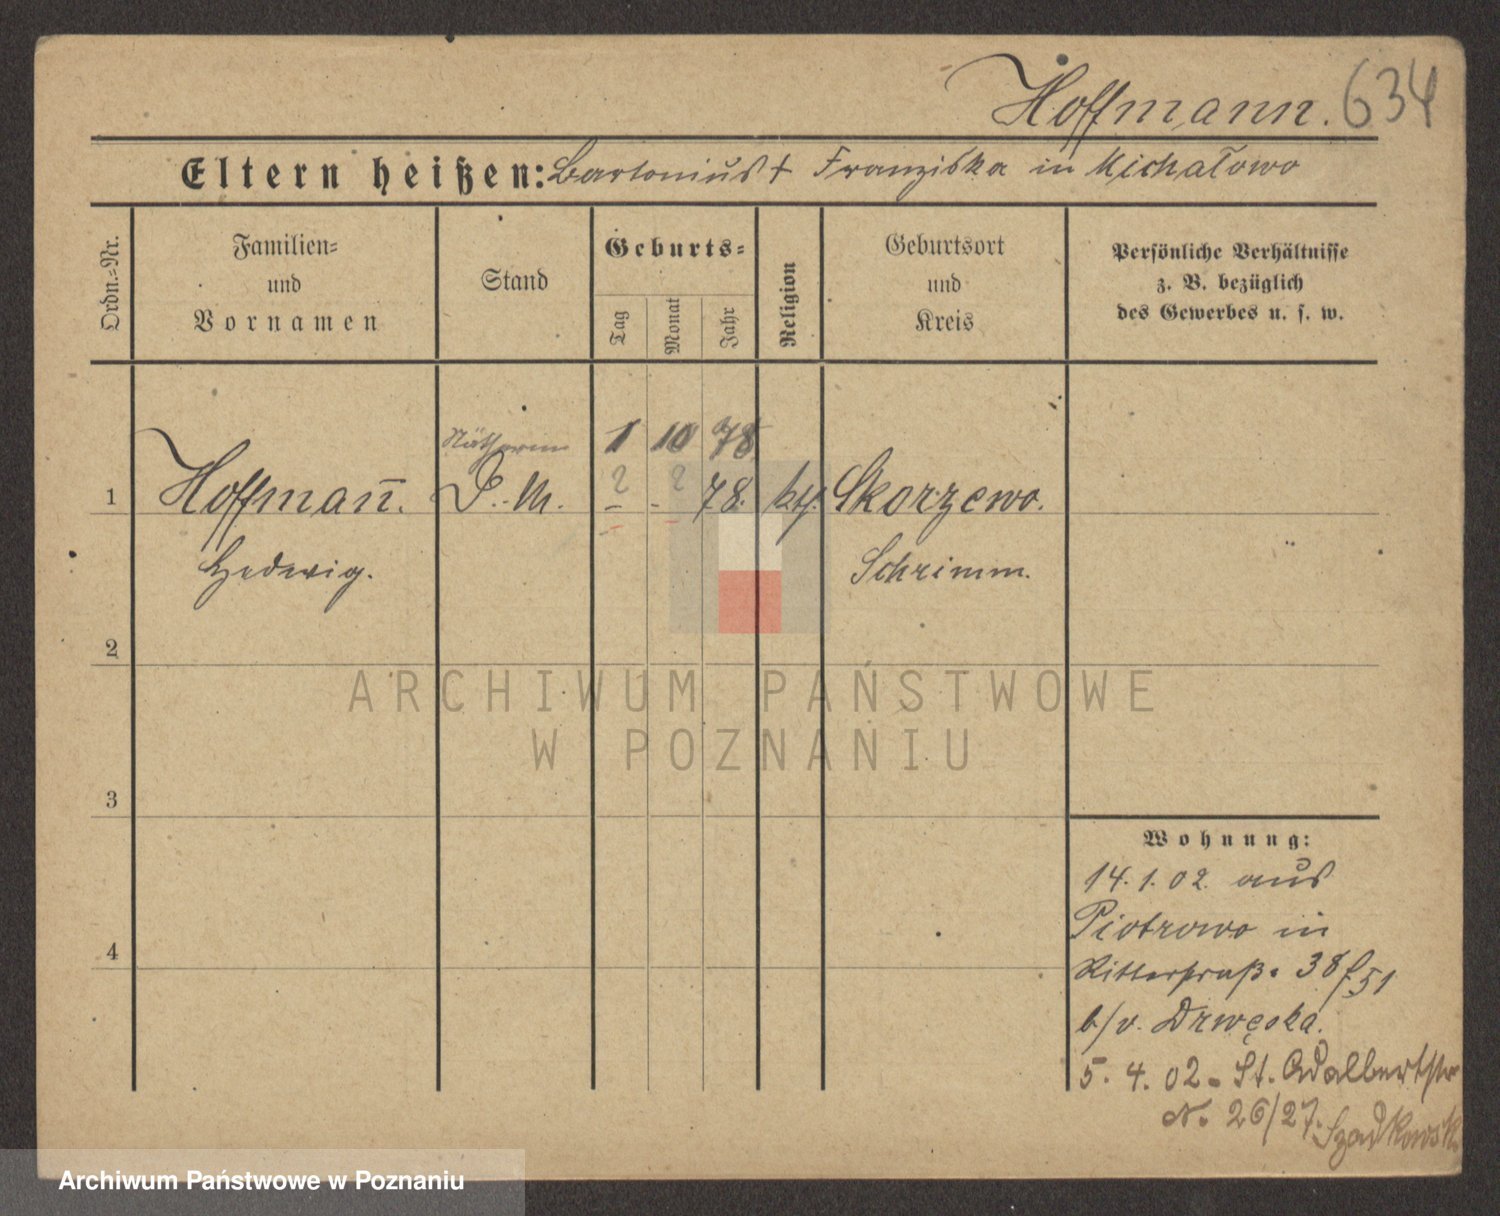 Hoffmann. 634
Eltern heißen: Bartonius † Franziska in Michałowo
Ordn.=Nr.
Familien=
und
Vornamen
Stand
Geburts=
Tag
Monat
Jahr
Religion
Geburtsort
und
Kreis
Persönliche Verhältnisse
z. B. bezüglich
des Gewerbes u. s. w.
Nätherin 1 10 78
1 Hoffmañ. D. M. ? ? 78. kth. Skorzewo.
Hedwig. Schrimm.
2
3
4
ARCHIWUM PAŃSTWOWE
W POZNANIU
Wohnung:
14. 1. 02. aus
Piotrowo in
Ritterstraß. 38 f. 51
b/v. Drwęska.
5. 4. 02. St. Adalbertstr
N. 26/27. Szadkowsk.
Archiwum Państwowe w Poznaniu